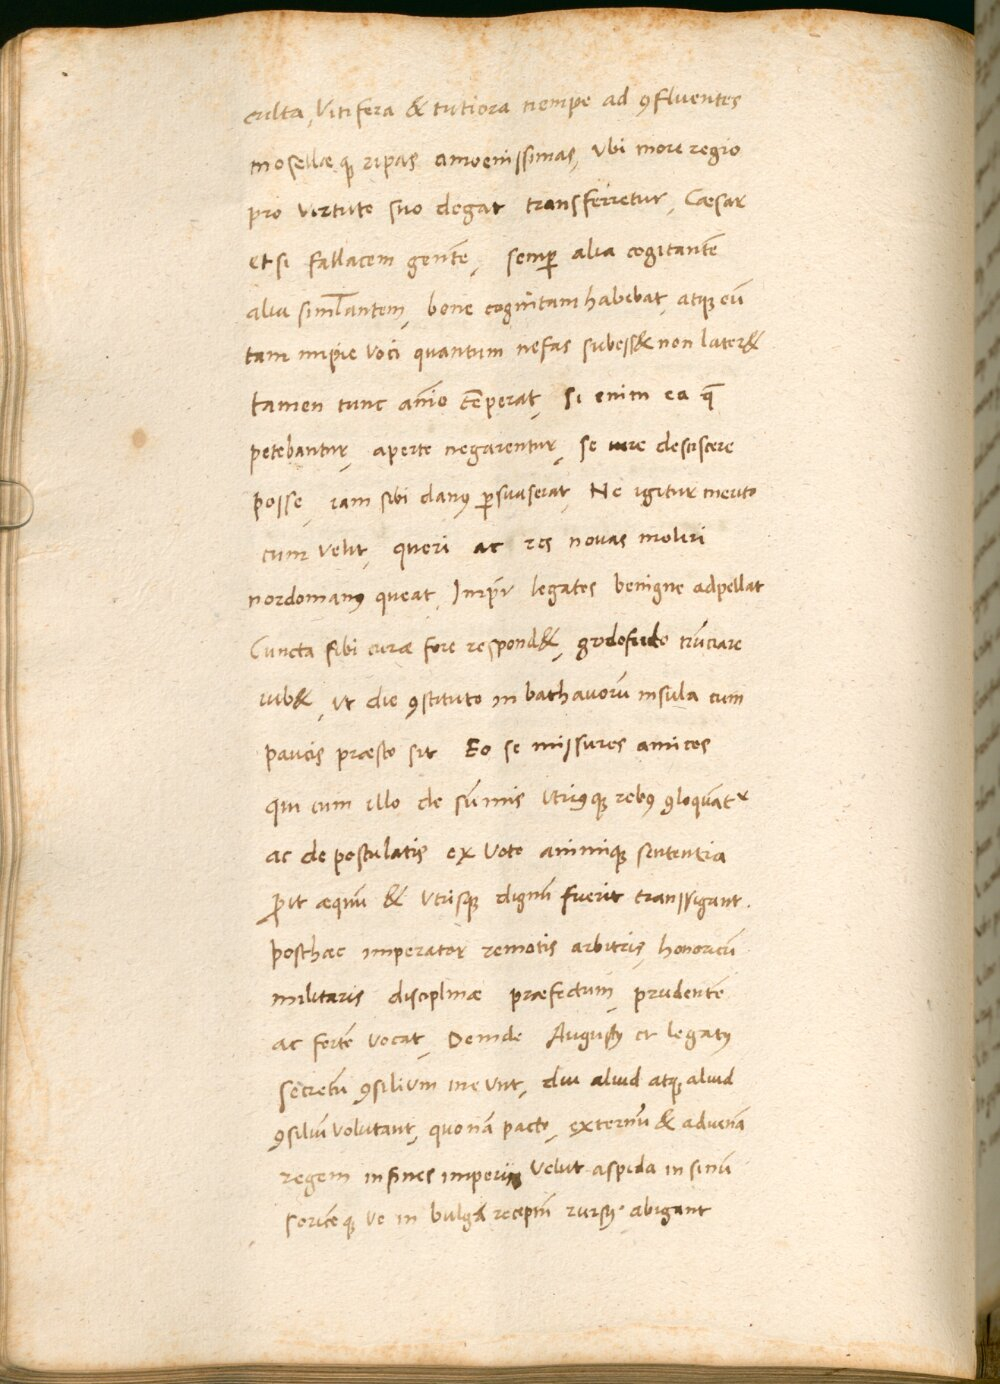 culta, Vitifera & tutiora nempe ad ꝯfluentes
mosellæ qꝫ ripas amoenissimas, Vbi more regio
pro virtute suo degat transferretur, Cæsar
etsi fallacem gentē, semꝑ alia cogitantē
alia simłantem, bene cognitam habebat, atqꝫ eū
tam impie voci quantum nefas subess& non later&
tamen tunc aīo tēperat, si enim ea q̄
petebantur, aperte negarentur, se iure desciscere
posse, iam sibi danꝰ ꝑsuaserat, Ne igitur merito
cum velit, queri ac res novas moliri
nordomanꝰ queat, Impr̄ legatos benigne adpellat
Cuncta sibi curæ fore respond&, godofrido nūciare
iub&, ut die ꝯstituto in bathavorū insula cum
paucis præsto sit Eo se missuros amicos
qui cum illo de sūmis utriꝰqꝫ rebꝰ ꝯloquāt᷑
ac de postulatis ex voto animiqꝫ sententia
ꝓut æquū & utrisqꝫ dignū fuerit transsigant.
posthac imperator remotis arbitris, honoricū
militaris disciplinæ præfectum, prudentē
ac fortē vocat, Deinde Augustꝰ et legatꝰ
secretū ꝯsilium ineunt, diu aliud atqꝫ aliud
ꝯsiliū volutant, quonā pacto, externū & advenā
regem in fines imperii, velut aspida in sinū
soricēqꝫ ve in bulgā receptū rursꝰ abigant